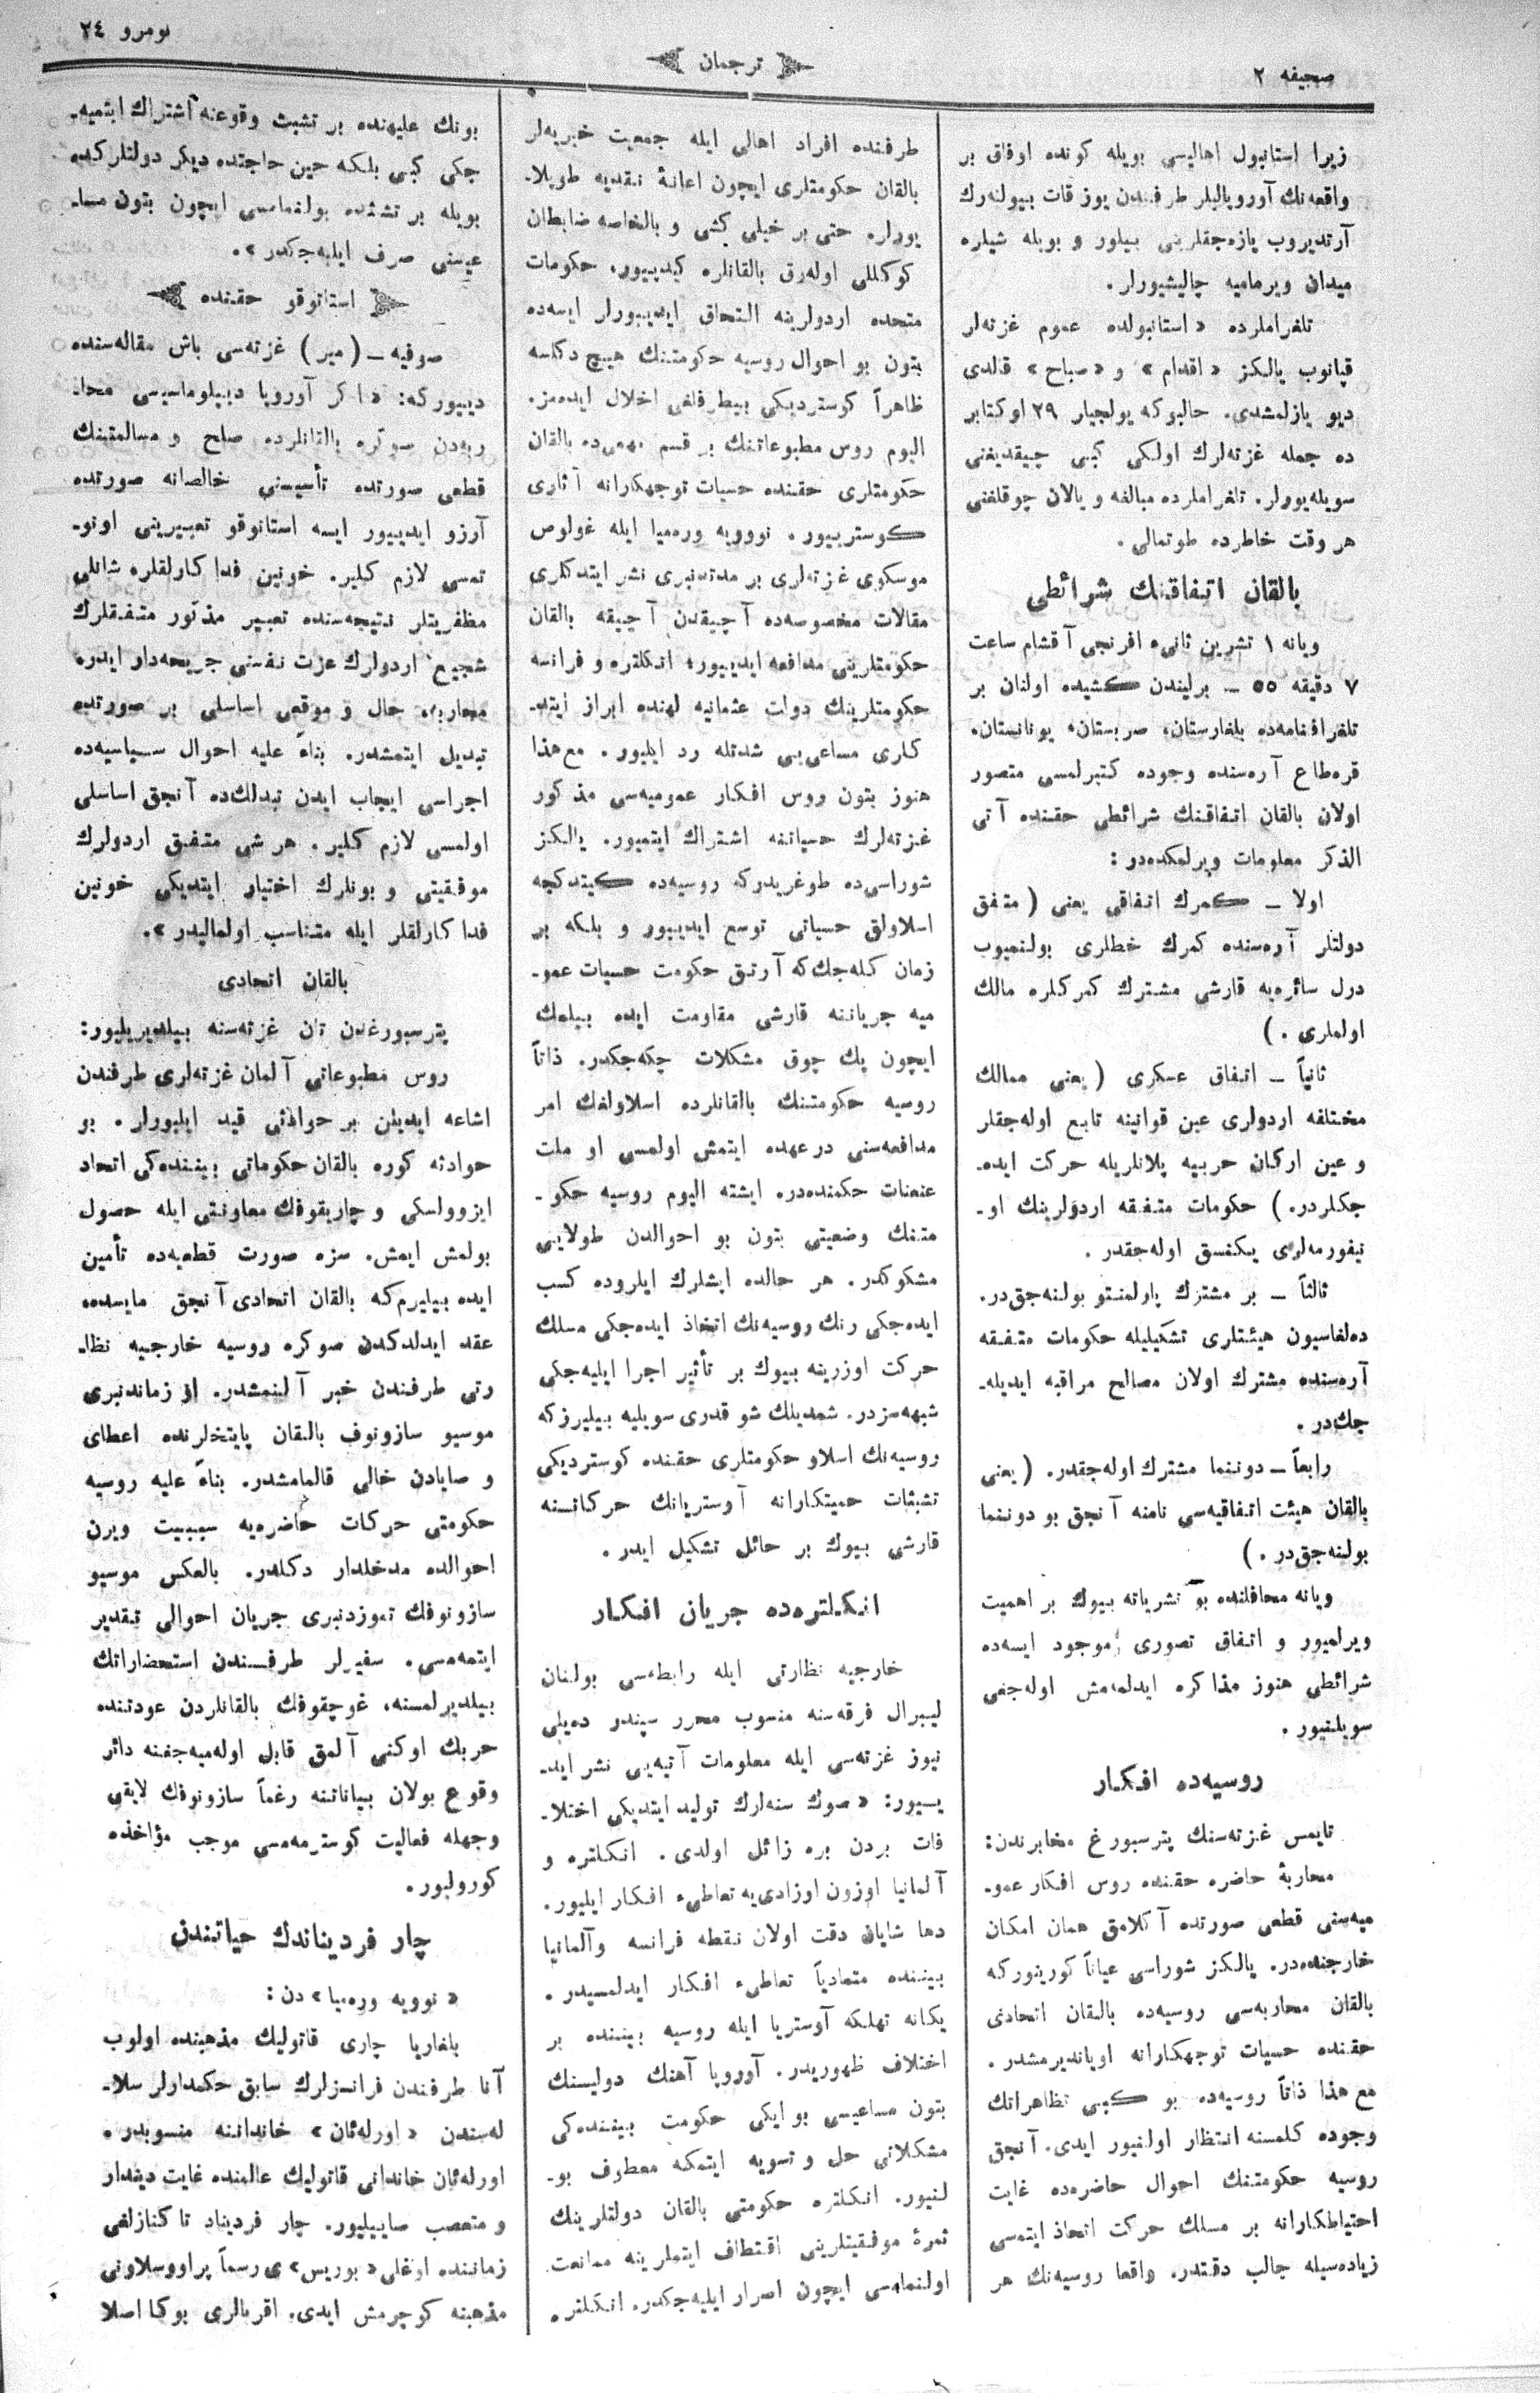 صحیفه ۲
ترجمان
نومرو ۲٤
زیرا استانبول اهالیسی بویله کونده اوفاق بر
واقعه‌نك آوروپالیلر طرفندن یوز قات بیولنه‌رك
آرتدیروب یازه‌جقلرینی بیلور و بویله شیلره
میدان ویرمامیه چالیشیورلر.
تلغراملرده «استانبولده عموم غزته‌لر
قپانوب یالکز «اقدام» و «صباح» قالدی
دیو یازلمشدی. حالبوکه یولجیلر ۲۹ اوکتابر
ده جمله غزته‌لرك اولکی کبی چیقدیغنی
سویله‌یورلر. تلغراملرده مبالغه و یالان چوقلغنی
هر وقت خاطرده طوتمالی.
بالقان اتفاقنك شرائطی
ویانه ۱ تشرین ثانیء افرنجی آقشام ساعت
۷ دقیقه ٥٥ ـ برلیندن کشیده اولنان بر
تلغرافنامه‌ده بلغارستان، صربستان، یونانستان،
قره‌طاغ آره‌سنده وجوده کتیرلمسی متصور
اولان بالقان اتفاقنك شرائطی حقنده آتی
الذکر معلومات ویرلمکده‌در:
اولا ـ کمرك اتفاقی یعنی (متفق
دولتلر آره‌سنده کمرك خطلری بولنمیوب
درل سائره‌یه قارشی مشترك کمرکلره مالك
اولملری.)
ثانیاً ـ اتفاق عسکری (یعنی ممالك
مختلفه اردولری عین قوانینه تابع اوله‌جقلر
و عین ارکان حربیه پلانلریله حرکت ایده‌ـ
جکلردر.) حکومات متفقه اردولرینك اوـ
نیفورمه‌لری یکنسق اوله‌جقدر.
ثالثاً ـ بر مشترك پارلمنتو بولنه‌جق‌در.
ده‌لغاسیون هیئتلری تشکیلیله حکومات متفقه
آره‌سنده مشترك اولان مصالح مراقبه ایدیله‌ـ
جك‌در.
رابعاً ـ دوننما مشترك اوله‌جقدر. (یعنی
بالقان هیئت اتفاقیه‌سی نامنه آنجق بو دوننما
بولنه‌جق‌در.)
ویانه محافلنده بو نشریاته بیوك بر اهمیت
ویرلمیور و اتفاق تصوری موجود ایسه‌ده
شرائطی هنوز مذاکره ایدلمه‌مش اوله‌جغی
سویلنیور.
روسیه‌ده افکار
تایمس غزته‌سنك پترسبورغ مخابرندن:
محاربۀ حاضره حقنده روس افکار عموـ
میه‌سنی قطعی صورتده آکلامق همان امکان
خارجنده‌در. یالکز شوراسی عیاناً کورینورکه
بالقان محاربه‌سی روسیه‌ده بالقان اتحادی
حقنده حسیات توجهکارانه اویاندیرمشدر.
مع هذا ذاتاً روسیه‌ده بو کبی تظاهراتك
وجوده کلمسنه انتظار اولنیور ایدی. آنجق
روسیه حکومتنك احوال حاضره‌ده غایت
احتیاطکارانه بر مسلك حرکت اتخاذ ایتمسی
زیاده‌سیله جالب دقتدر. واقعا روسیه‌نك هر
طرفنده افراد اهالی ایله جمعیت خیریه‌لر
بالقان حکومتلری ایچون اعانۀ نقدیه طوپلاـ
یورلر. حتی بر خیلی کشی و بالخاصه ضابطان
کوکللی اوله‌رق بالقانلره کیدییور، حکومات
متحده اردولرینه التحاق ایدییورلر ایسه‌ده
بتون بو احوال روسیه حکومتنك هیچ دکلسه
ظاهراً کوستردیکی بیطرفلغی اخلال ایده‌مز.
الیوم روس مطبوعاتنك بر قسم مهمی‌ده بالقان
حکومتلری حقنده حسیات توجهکارانه آثاری
کوسترییور. نوویه وره‌میا ایله غولوص
موسکوی غزته‌لری بر مدتدنبری نشر ایتدکلری
مقالات مخصوصه‌ده آچیقدن آچیقه بالقان
حکومتلرینی مدافعه ایدییور؛ انکلتره و فرانسه
حکومتلرینك دولت عثمانیه لهنده ابراز ایتدـ
کلری مساعی‌یی شدتله رد ایلیور. مع‌هذا
هنوز بتون روس افکار عمومیه‌سی مذکور
غزته‌لرك حسیاتنه اشتراك ایتمیور. یالکز
شوراسی‌ده طوغریدرکه روسیه‌ده کیتدکجه
اسلاولق حسیاتی توسع ایدییور و بلکه بر
زمان کله‌جك‌که آرتق حکومت حسیات عموـ
میه جریاننه قارشی مقاومت ایده بیلمك
ایچون پك چوق مشکلات چکه‌جکدر. ذاتاً
روسیه حکومتنك بالقانلرده اسلاولغك امر
مدافعه‌سنی درعهده ایتمش اولمسی او ملت
عنعنات حکمنده‌در. ایشته الیوم روسیه حکوـ
متنك وضعیتی بتون بو احوالدن طولایی
مشکوکدر. هر حالده ایشلرك ایلروده کسب
ایده‌جکی رنك روسیه‌نك اتخاذ ایده‌جکی مسلك
حرکت اوزرینه بیوك بر تأثیر اجرا ایلیه‌جکی
شبهه‌سزدر. شمدیلك شو قدری سویلیه بیلیرزکه
روسیه‌نك اسلاو حکومتلری حقنده کوستردیکی
تشبثات حمیتکارانه آوستریانك حرکاتنه
قارشی بیوك بر حائل تشکیل ایدر.
انکلتره‌ده جریان افکار
خارجیه نظارتی ایله رابطه‌سی بولنان
لیبرال فرقه‌سنه منسوب محرر سپندر ده‌یلی
نیوز غزته‌سی ایله معلومات آتیه‌یی نشر ایدـ
ییور: «صوك سنه‌لرك تولید ایتدیکی اختلاـ
فات بردن بره زائل اولدی. انکلتره و
آلمانیا اوزون اوزادی‌یه تعاطیء افکار ایلیور.
دها شایان دقت اولان نقطه فرانسه و آلمانیا
بیننده متمادیاً تعاطیء افکار ایدلمسیدر.
یکانه تهلکه آوستریا ایله روسیه بیننده بر
اختلاف ظهوریدر. آوروپا آهنك دولیسنك
بتون مساعیسی بو ایکی حکومت بیننده‌کی
مشکلاتی حل و تسویه ایتمکه معطوف بوـ
لنیور. انکلتره حکومتی بالقان دولتلرینك
ثمرۀ موفقیتلرینی اقتطاف ایتملرینه ممانعت
اولنمامسی ایچون اصرار ایلیه‌جکدر. انکلتره
بونك علیهنده بر تشبث وقوعنه اشتراك ایتمیه‌ـ
جکی کبی بلکه حین حاجتده دیکر دولتلرکده
بویله بر تشبثده بولنمامسی ایچون بتون مساـ
عیسنی صرف ایلیه‌جکدر».
استاتوقو حقنده
صوفیه ـ (میر) غزته‌سی باش مقاله‌سنده
دییورکه: «اکر آوروپا دیپلوماسیسی محاـ
ربه‌دن صوکره بالقانلرده صلح و مسالمتنك
قطعی صورتده تأسیسنی خالصانه صورتده
آرزو ایدییور ایسه استاتوقو تعبیرینی اونوـ
تمسی لازم کلیر. خونین فداکارلقلره شانلی
مظفریتلر نتیجه‌سنده تعبیر مذکور متفقلرك
شجیع اردولرك عزت نفسنی جریحه‌دار ایدر.
محاربه، حال و موقعی اساسلی بر صورتده
تبدیل ایتمشدر. بناءً علیه احوال سیاسیه‌ده
اجراسی ایجاب ایدن تبدلك‌ده آنجق اساسلی
اولمسی لازم کلیر. هر شی متفق اردولرك
موفقیتی و بونلرك اختیار ایتدیکی خونین
فداکارلقلر ایله متناسب اولمالیدر».
بالقان اتحادی
پترسبورغدن تان غزته‌سنه بیلدیریلیور:
روس مطبوعاتی آلمان غزته‌لری طرفندن
اشاعه ایدیلن بر حوادثی قید ایلیورلر. بو
حوادثه کوره بالقان حکوماتی بیننده‌کی اتحاد
ایزوولسکی و چاریقوفك معاونتی ایله حصول
بولمش ایمش. سزه صورت قطعیه‌ده تأمین
ایده بیلیرم‌که بالقان اتحادی آنجق مایسده
عقد ایدلدکدن صوکره روسیه خارجیه نظاـ
رتی طرفندن خبر آلنمشدر. او زماندنبری
موسیو سازونوف بالقان پایتختلرنده اعطای
و صایادن خالی قالمامشدر. بناءً علیه روسیه
حکومتی حرکات حاضره‌یه سببیت ویرن
احوالده مدخلدار دکلدر. بالعکس موسیو
سازونوفك تموزدنبری جریان احوالی تقدیر
ایتمه‌مسی. سفیرلر طرفندن استحضاراتك
بیلدیرلمسنه، غوچقوفك بالقانلردن عودتنده
حربك اوکنی آلمق قابل اوله‌میه‌جغنه دائر
وقوع بولان بیاناتنه رغماً سازونوفك لایقی
وجهله فعالیت کوسترمه‌مسی موجب مؤاخذه
کورولیور.
چار فردیناندك حیاتندن
«نوویه وره‌میا» دن:
بلغاریا چاری قاتولیك مذهبنده اولوب
آنا طرفندن فرانسزلرك سابق حکمدارلر سلاـ
له‌سندن «اورله‌ئان» خانداننه منسوبدر.
اورله‌ئان خاندانی قاتولیك عالمنده غایت دیندار
و متعصب صاییلیور. چار فردیناد تا کنازلغی
زماننده اوغلی «بوریس» ی رسماً پراووسلاونی
مذهبنه کوچرمش ایدی. اقربالری بوکا اصلا